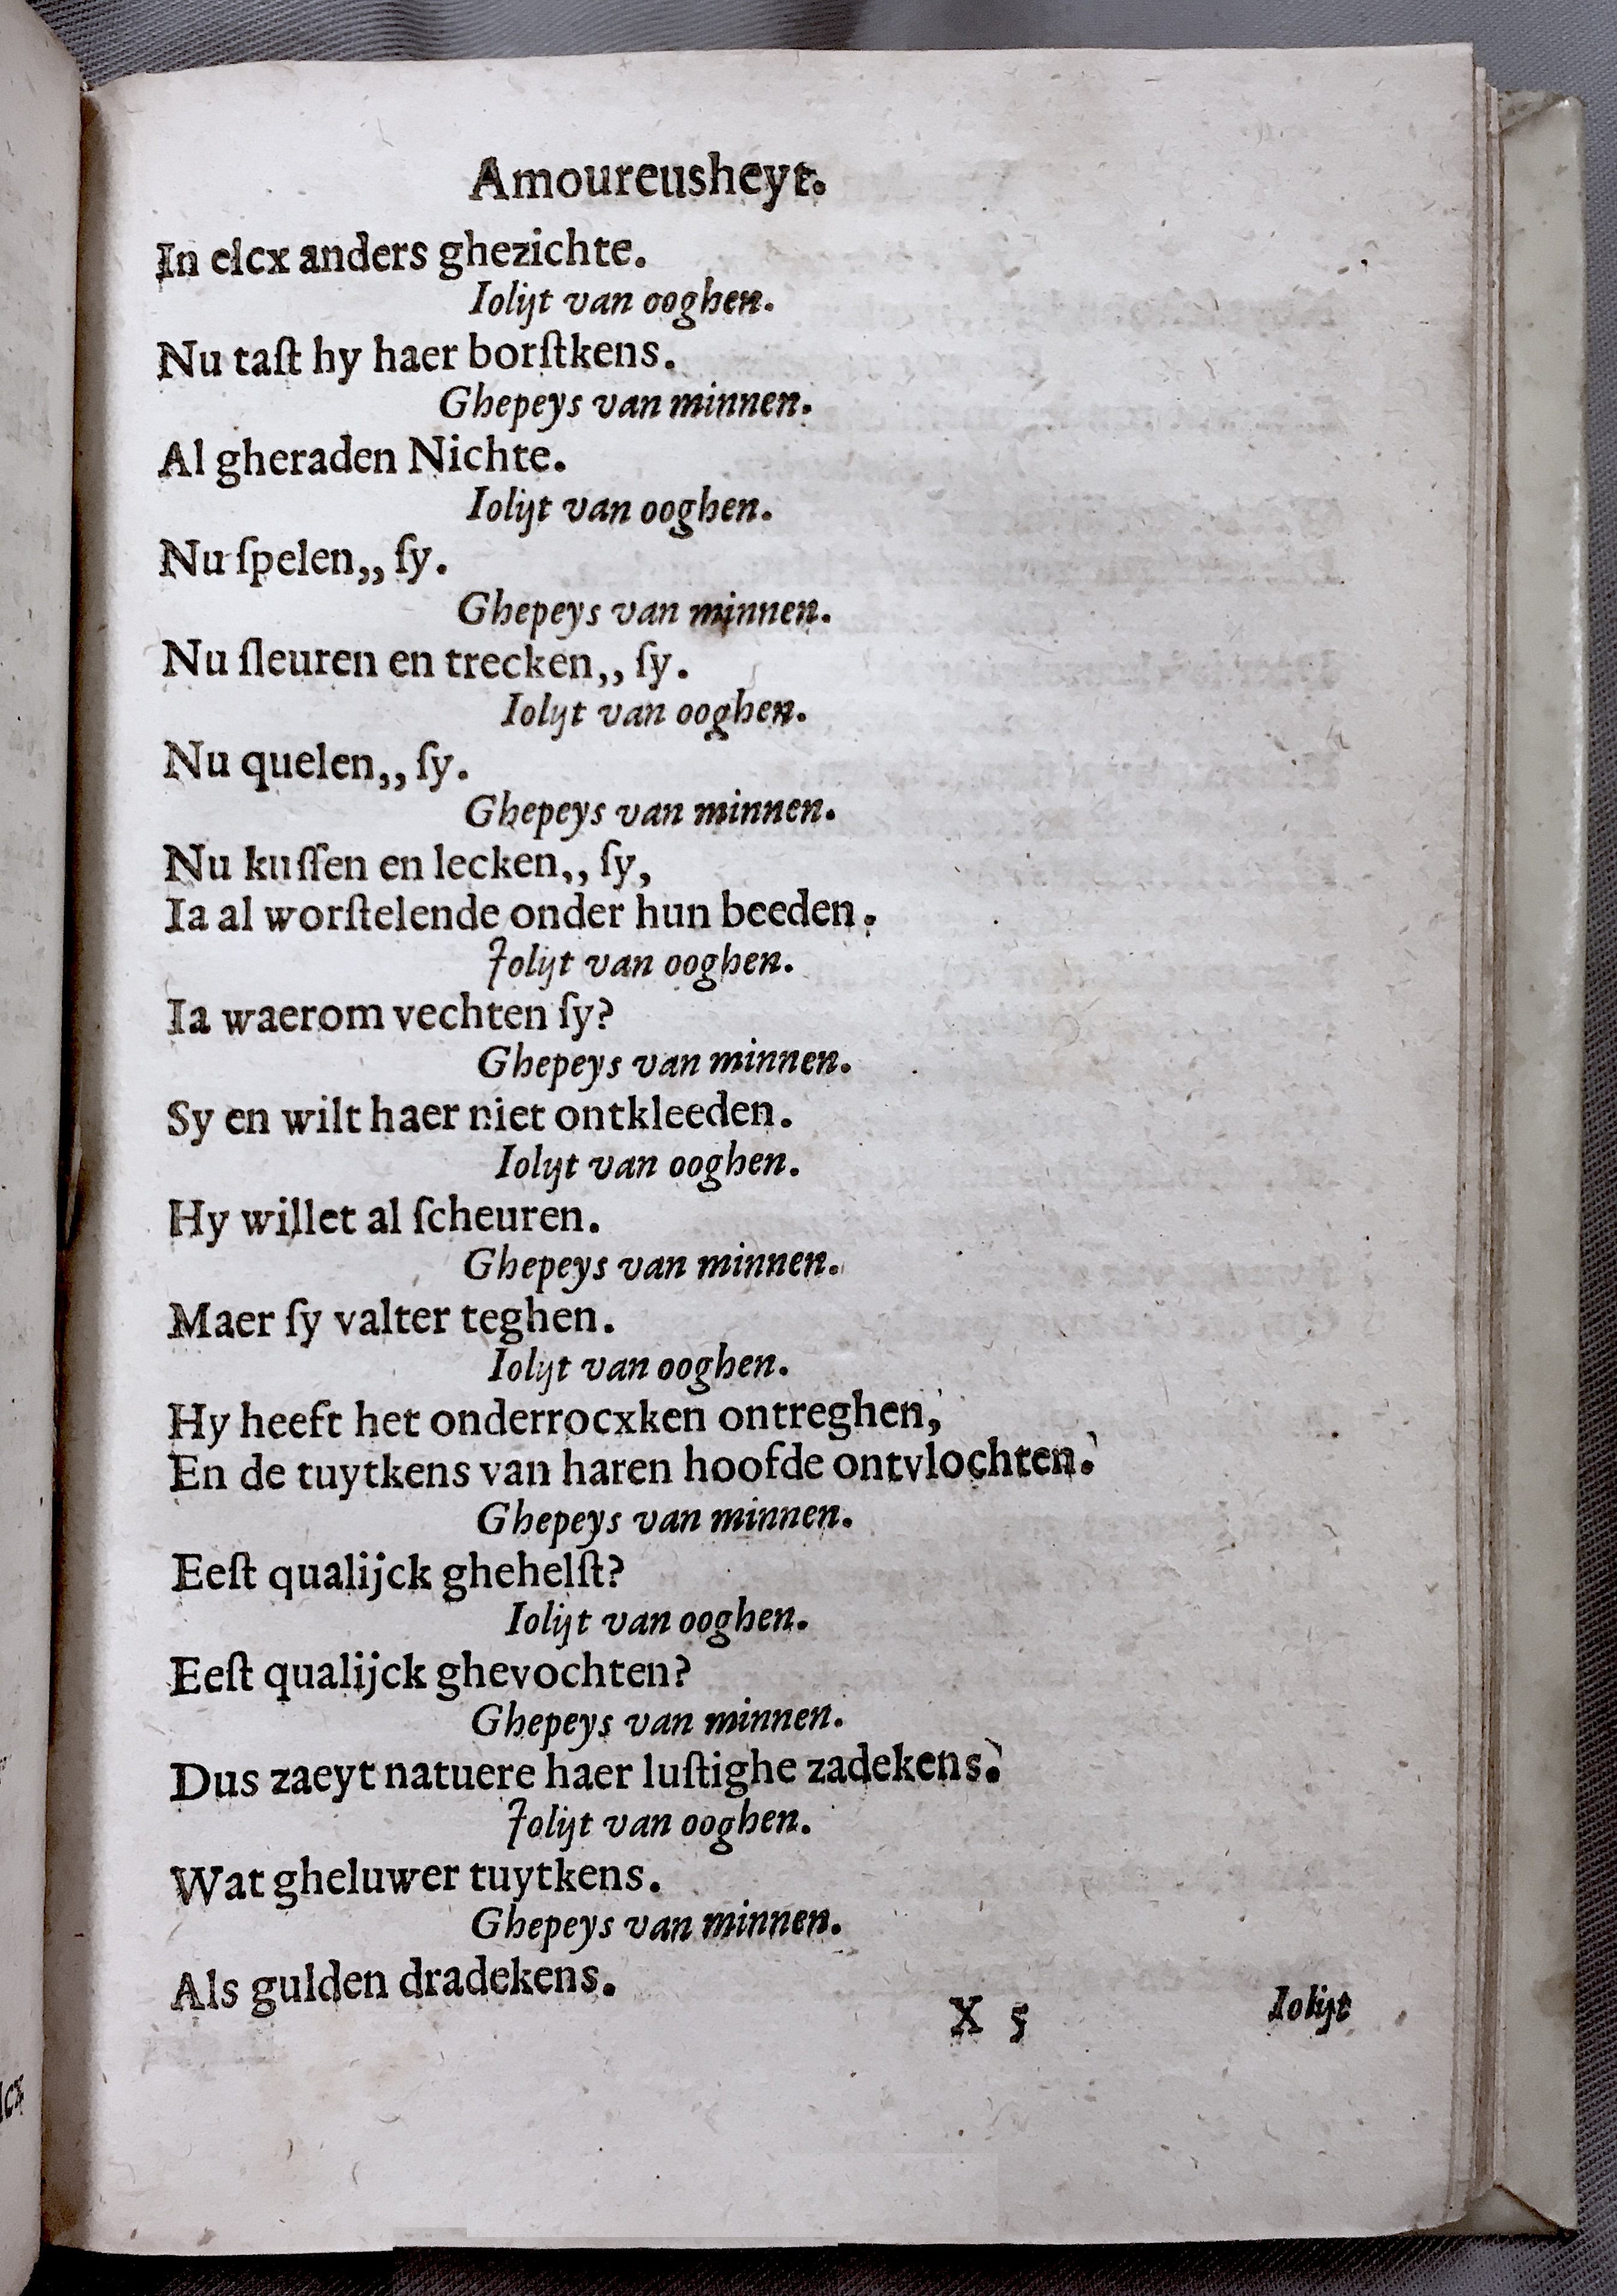 Amoureusheyt.
In elcx anders ghezichte.
Iolijt van ooghen.
Nu taſt hy haer borſtkens.
Ghepeys van minnen.
Al gheraden Nichte.
Iolijt van ooghen.
Nu ſpelen,, ſy.
Ghepeys van minnen.
Nu ſleuren en trecken,, ſy.
Iolijt van ooghen.
Nu quelen,, ſy.
Ghepeys van minnen.
Nu kuſſen en lecken,, ſy,
Ia al worſtelende onder hun beeden.
Jolijt van ooghen.
Ia waerom vechten ſy?
Ghepeys van minnen.
Sy en wilt haer niet ontkleeden.
Iolijt van ooghen.
Hy willet al ſcheuren.
Ghepeys van minnen.
Maer ſy valter teghen.
Iolijt van ooghen.
Hy heeft het onderrocxken ontreghen,
En de tuytkens van haren hoofde ontvlochten.
Ghepeys van minnen.
Eeſt qualijck ghehelſt?
Iolijt van ooghen.
Eeſt qualijck ghevochten?
Ghepeys van minnen.
Dus zaeyt natuere haer luſtighe zadekens.
Jolijt van ooghen.
Wat gheluwer tuytkens.
Ghepeys van minnen.
Als gulden dradekens.
X 5
Iolijt
lcx